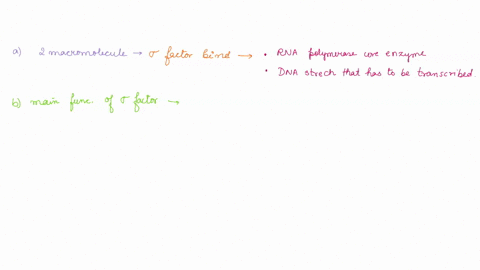 a) 2 macromolecule → σ factor bind → • RNA polymerase core enzyme
• DNA strech that has to be transcribed.
b) main func. of σ factor →